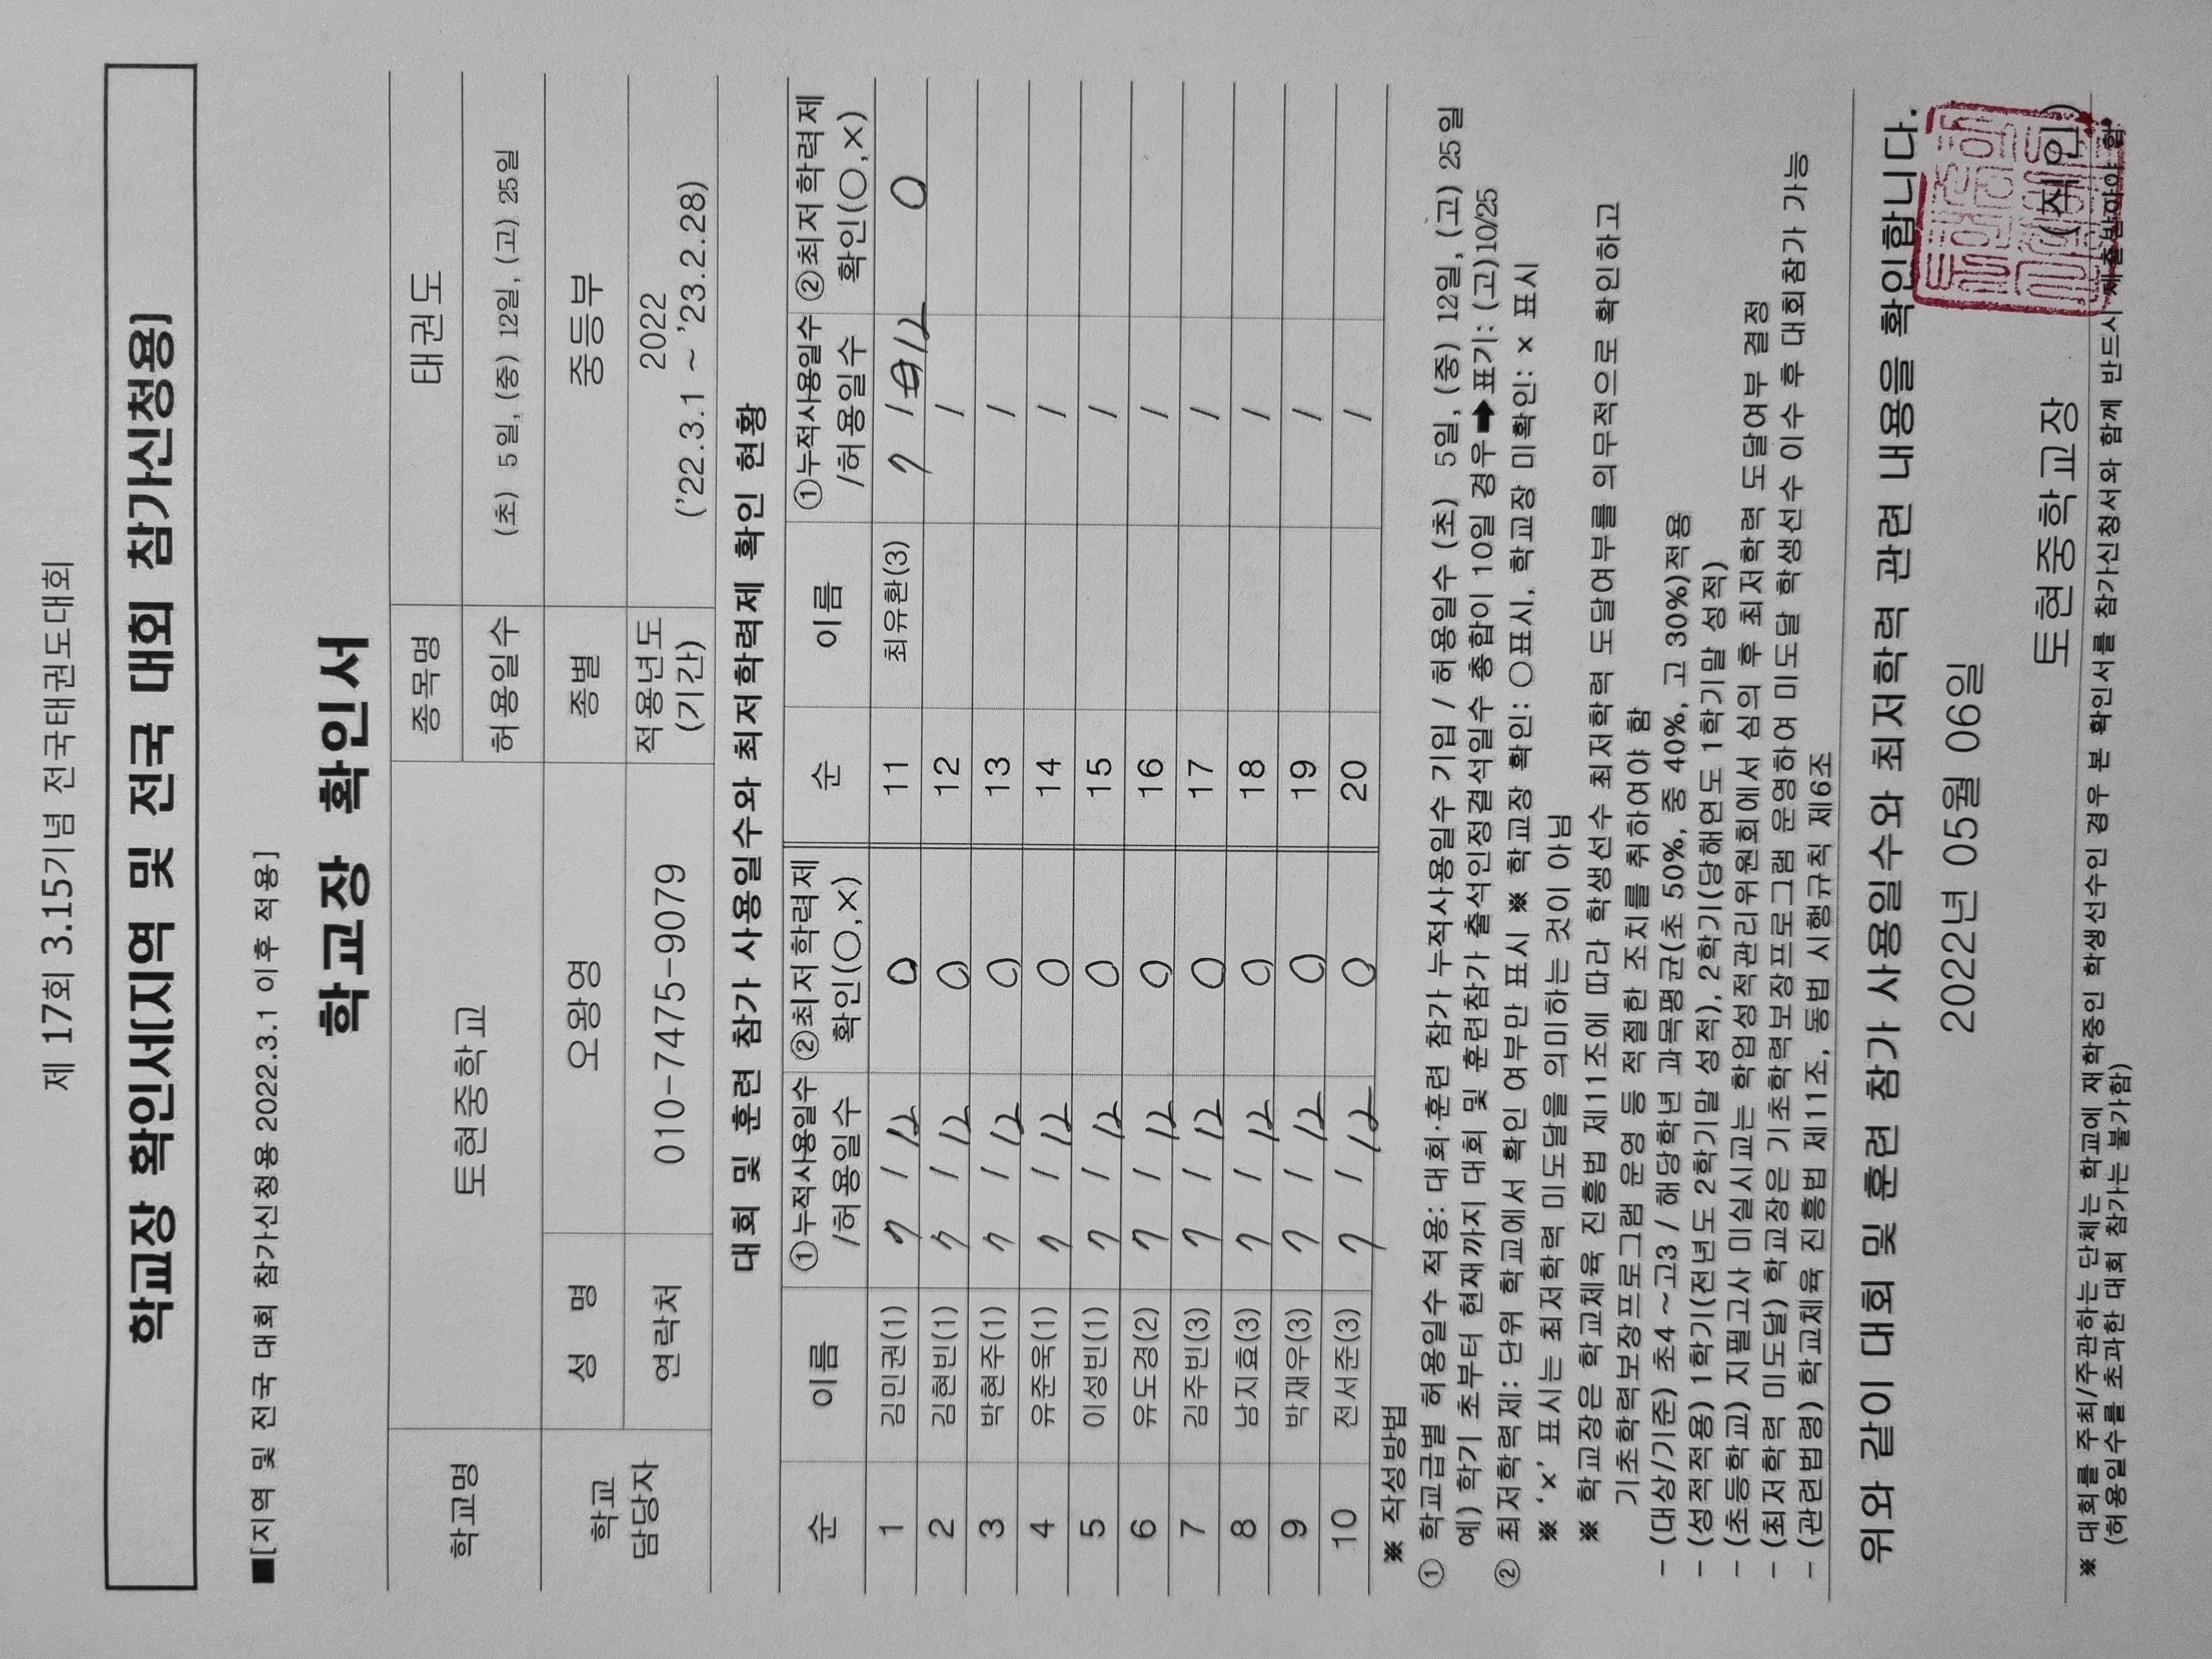 제 17회 3.15기념 전국태권도대회
학교장 확인서(지역 및 전국 대회 참가신청용)
■[지역 및 전국 대회 참가신청용 2022.3.1 이후 적용]
학교장 확인서
학교명 토현중학교 종목명 태권도
허용일수 (초) 5일, (중) 12일, (고) 25일
학교 담당자 성 명 오왕영 종별 중등부
연락처 010-7475-9079 적용년도 (기간) 2022 ('22.3.1 ~ '23.2.28)
대회 및 훈련 참가 사용일수와 최저학력제 확인 현황
순 이름 ①누적사용일수 /허용일수 ②최저학력제 확인(○,×) 순 이름 ①누적사용일수 /허용일수 ②최저학력제 확인(○,×)
1 김민권(1) 7 / 12 O 11 최유환(3) 7 / 12 O
2 김현빈(1) 7 / 12 O 12 /
3 박현주(1) 7 / 12 O 13 /
4 유준욱(1) 7 / 12 O 14 /
5 이성빈(1) 7 / 12 O 15 /
6 유도경(2) 7 / 12 O 16 /
7 김주빈(3) 7 / 12 O 17 /
8 남지효(3) 7 / 12 O 18 /
9 박재우(3) 7 / 12 O 19 /
10 전서준(3) 7 / 12 O 20 /
※ 작성방법
① 학교급별 허용일수 적용: 대회·훈련 참가 누적사용일수 기입 / 허용일수 (초) 5일, (중) 12일, (고) 25일
예) 학기 초부터 현재까지 대회 및 훈련참가 출석인정결석일수 총합이 10일 경우➡표기: (고)10/25
② 최저학력제: 단위 학교에서 확인 여부만 표시 ※ 학교장 확인: ○표시, 학교장 미확인: × 표시
※ '×' 표시는 최저학력 미도달을 의미하는 것이 아님
※ 학교장은 학교체육 진흥법 제11조에 따라 학생선수 최저학력 도달여부를 의무적으로 확인하고
기초학력보장프로그램 운영 등 적절한 조치를 취하여야 함
- (대상/기준) 초4~고3 / 해당학년 과목평균(초 50%, 중 40%, 고 30%)적용
- (성적적용) 1학기(전년도 2학기말 성적), 2학기(당해연도 1학기말 성적)
- (초등학교) 지필고사 미실시교는 학업성적관리위원회에서 심의 후 최저학력 도달여부 결정
- (최저학력 미도달) 학교장은 기초학력보장프로그램 운영하여 미도달 학생선수 이수 후 대회참가 가능
- (관련법령) 학교체육 진흥법 제11조, 동법 시행규칙 제6조
위와 같이 대회 및 훈련 참가 사용일수와 최저학력 관련 내용을 확인합니다.
2022년 05월 06일
토현중학교장 (직인)
※ 대회를 주최/주관하는 단체는 학교에 재학중인 학생선수인 경우 본 확인서를 참가신청서와 함께 반드시 제출받아야 함
(허용일수를 초과한 대회 참가는 불가함)